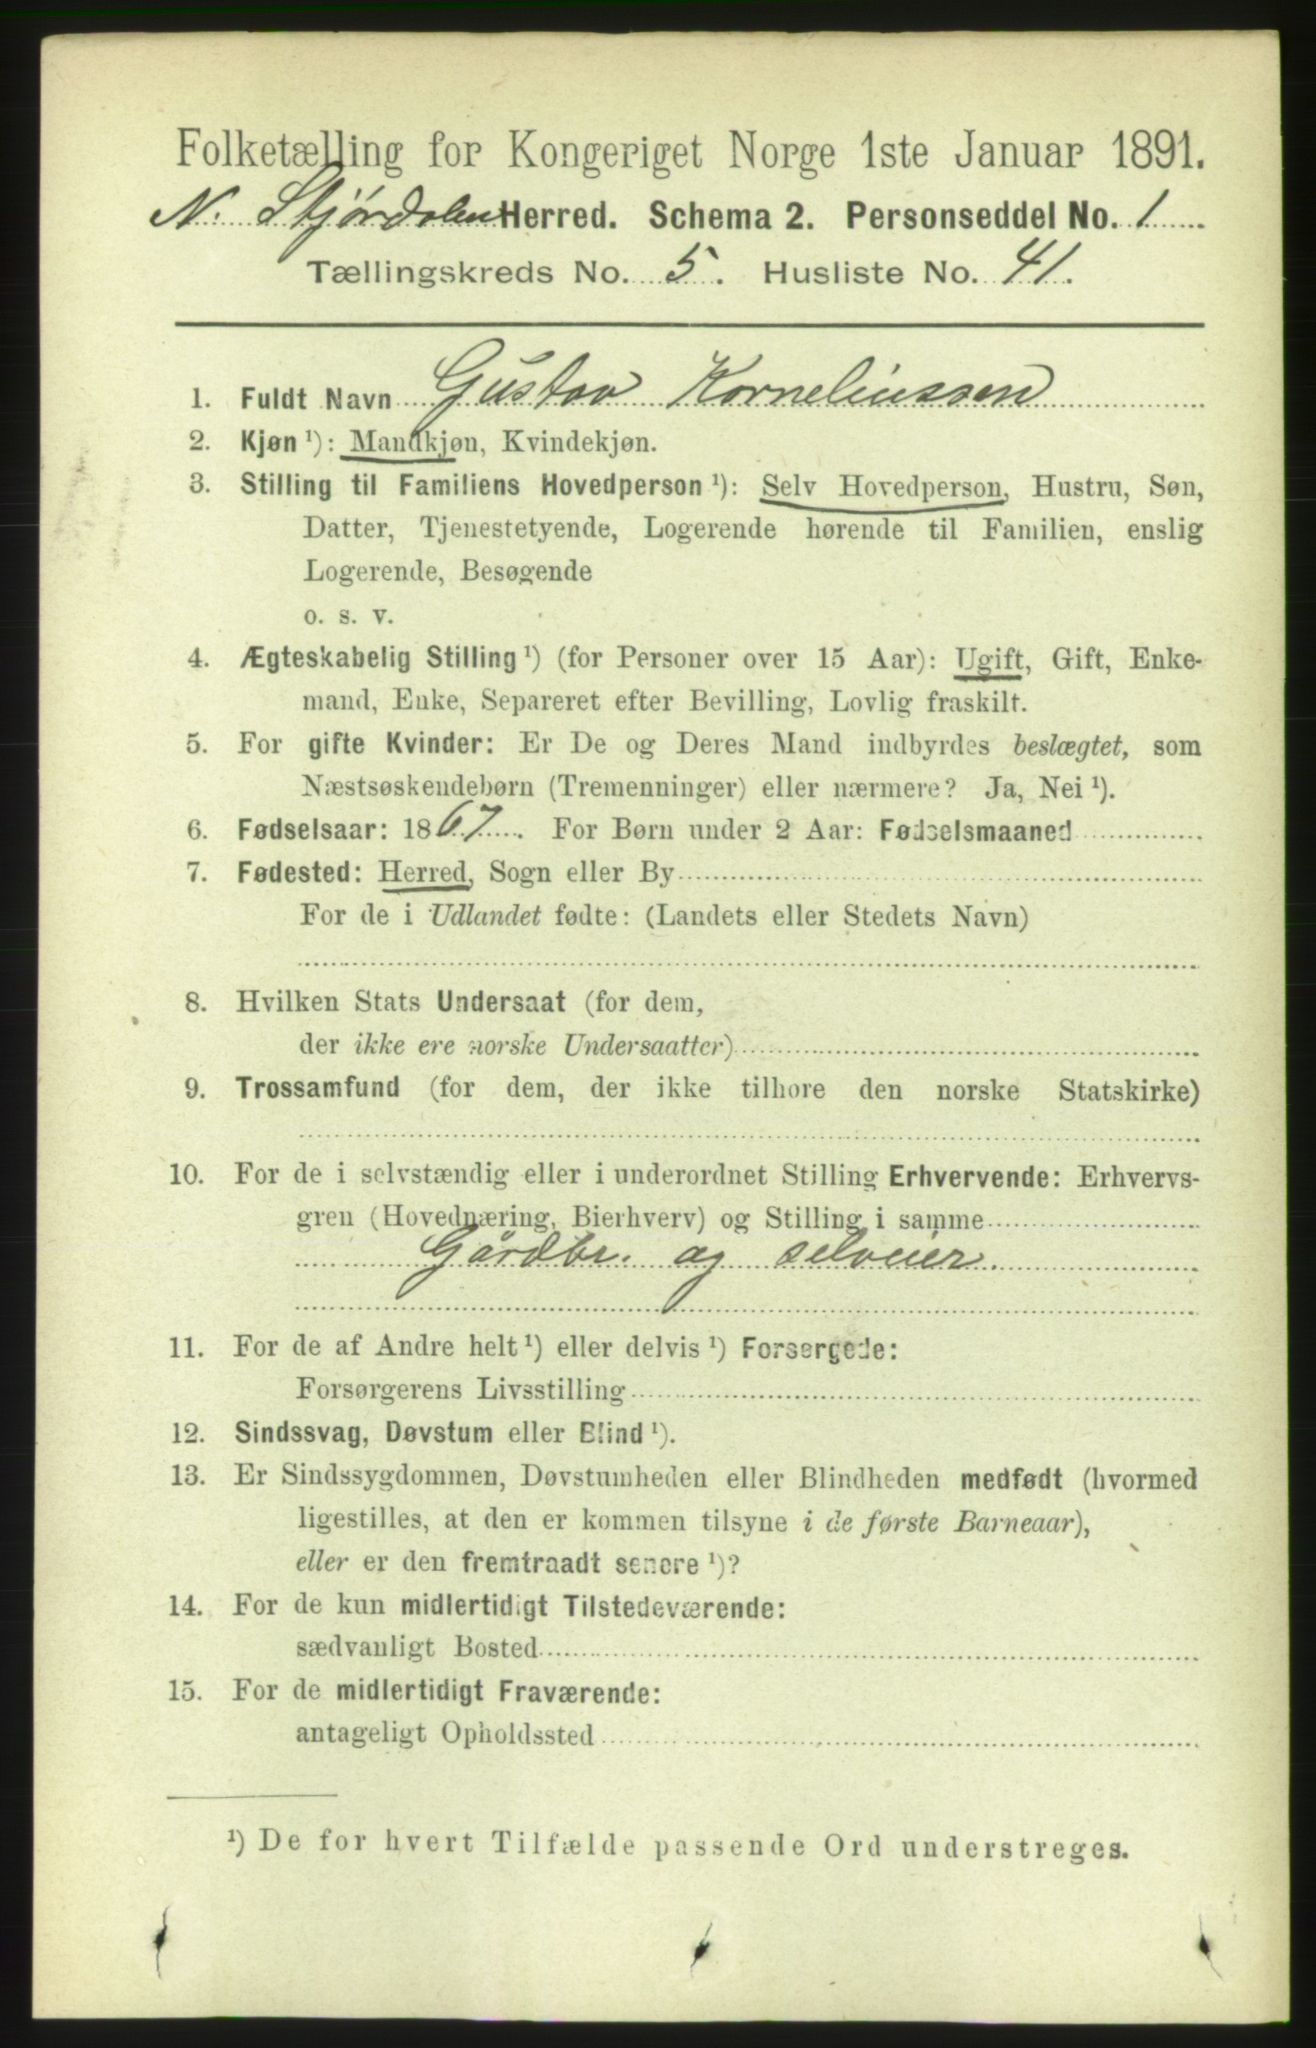 Folketælling for Kongeriget Norge 1ste Januar 1891.
N. Stjørdalen Herred. Schema 2. Personseddel No. 1
Tællingskreds No. 5. Husliste No. 41.
1. Fuldt Navn Gustav Korneliussen
2. Kjøn ¹): Mandkjøn, Kvindekjøn.
3. Stilling til Familiens Hovedperson ¹): Selv Hovedperson, Hustru, Søn,
Datter, Tjenestetyende, Logerende hørende til Familien, enslig
Logerende, Besøgende
o. s. v.
4. Ægteskabelig Stilling ¹) (for Personer over 15 Aar): Ugift, Gift, Enke-
mand, Enke, Separeret efter Bevilling, Lovlig fraskilt.
5. For gifte Kvinder: Er De og Deres Mand indbyrdes beslægtet, som
Næstsøskendebørn (Tremenninger) eller nærmere? Ja, Nei ¹).
6. Fødselsaar: 1867. For Børn under 2 Aar: Fødselsmaaned
7. Fødested: Herred, Sogn eller By
For de i Udlandet fødte: (Landets eller Stedets Navn)
8. Hvilken Stats Undersaat (for dem,
der ikke ere norske Undersaatter)
9. Trossamfund (for dem, der ikke tilhøre den norske Statskirke)
10. For de i selvstændig eller i underordnet Stilling Erhvervende: Erhvervs-
gren (Hovednæring, Bierhverv) og Stilling i samme
Gårdbr. og selveier.
11. For de af Andre helt ¹) eller delvis ¹) Forsørgede:
Forsørgerens Livsstilling
12. Sindssvag, Døvstum eller Blind ¹).
13. Er Sindssygdommen, Døvstumheden eller Blindheden medfødt (hvormed
ligestilles, at den er kommen tilsyne i de første Barneaar),
eller er den fremtraadt senere ¹)?
14. For de kun midlertidigt Tilstedeværende:
sædvanligt Bosted
15. For de midlertidigt Fraværende:
antageligt Opholdssted
¹) De for hvert Tilfælde passende Ord understreges.